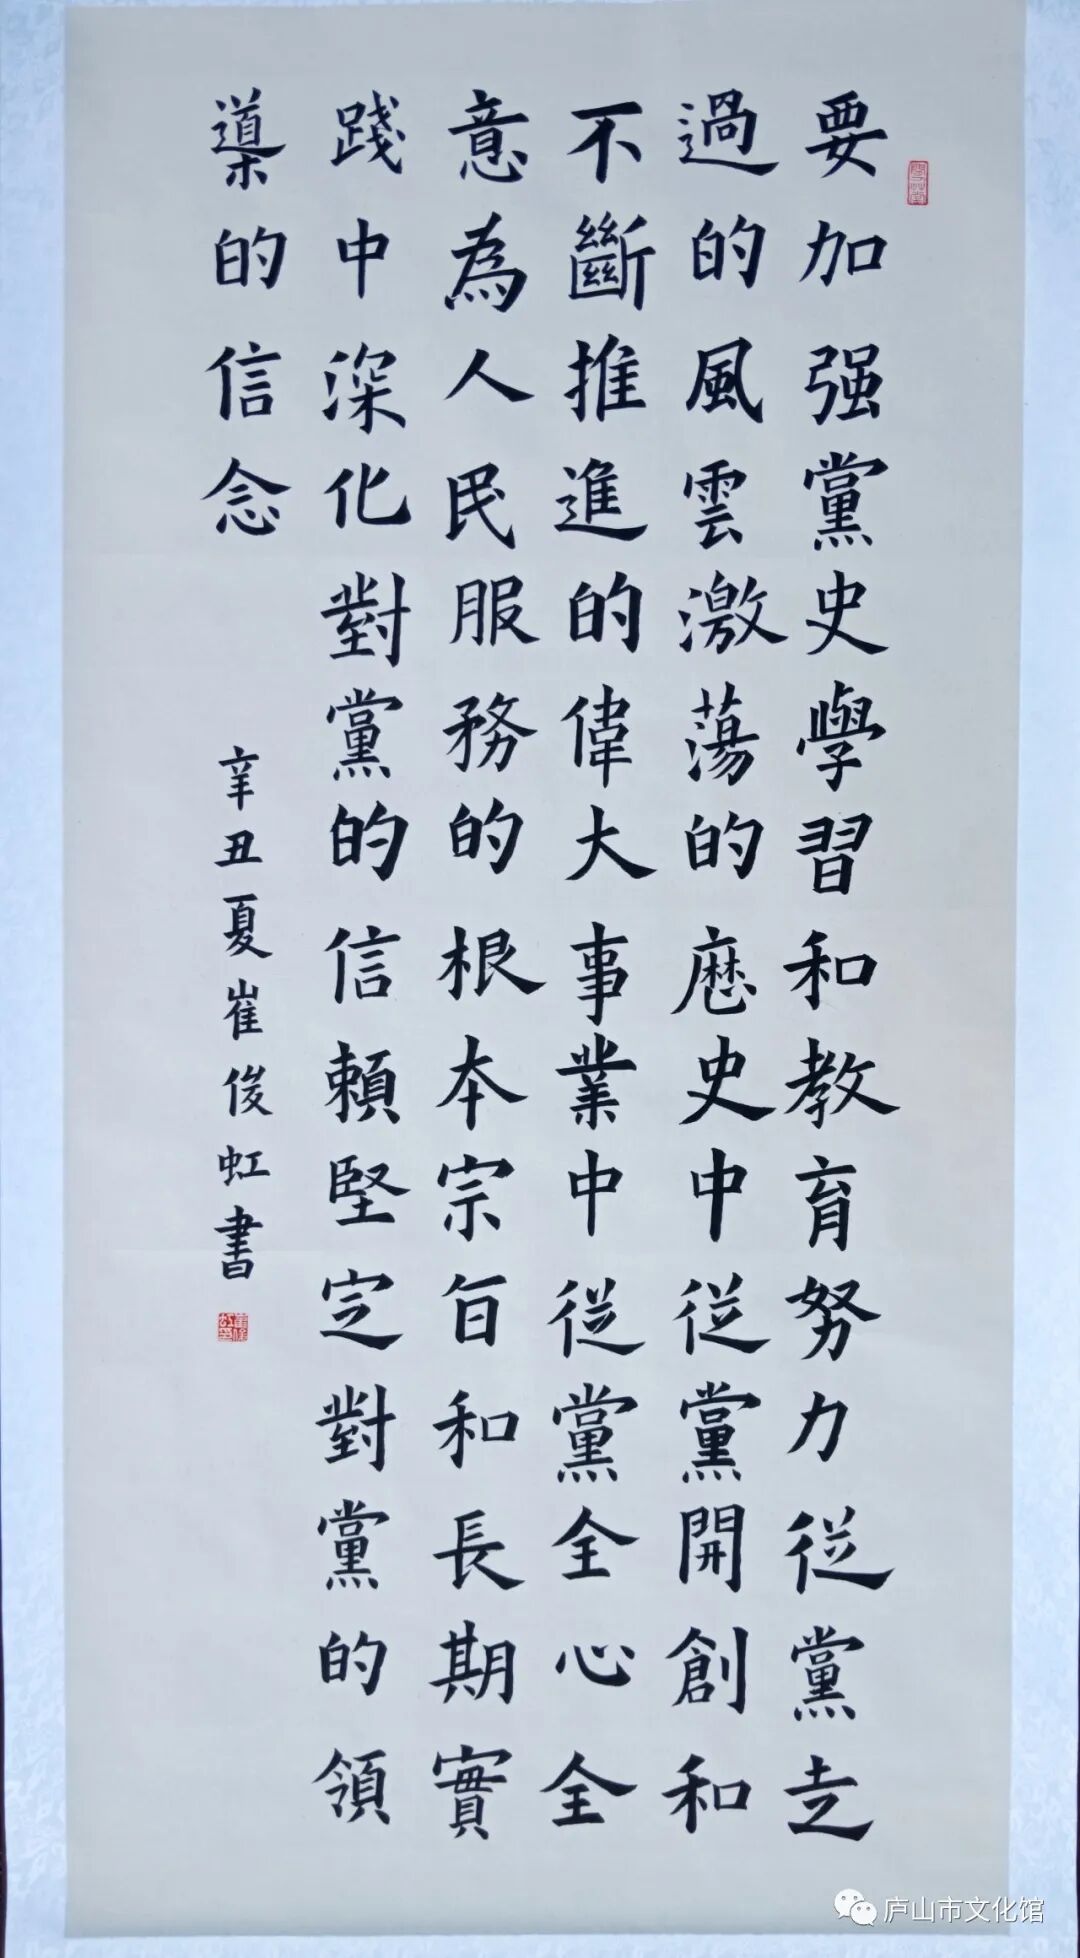 要加强黨史學習和教育努力從黨走
過的風雲激蕩的歷史中從黨開創和
不斷推進的偉大事業中從黨全心全
意為人民服務的根本宗旨和長期實
踐中深化對黨的信賴堅定對黨的領
導的信念
辛丑夏崔俊虹書
庐山市文化馆